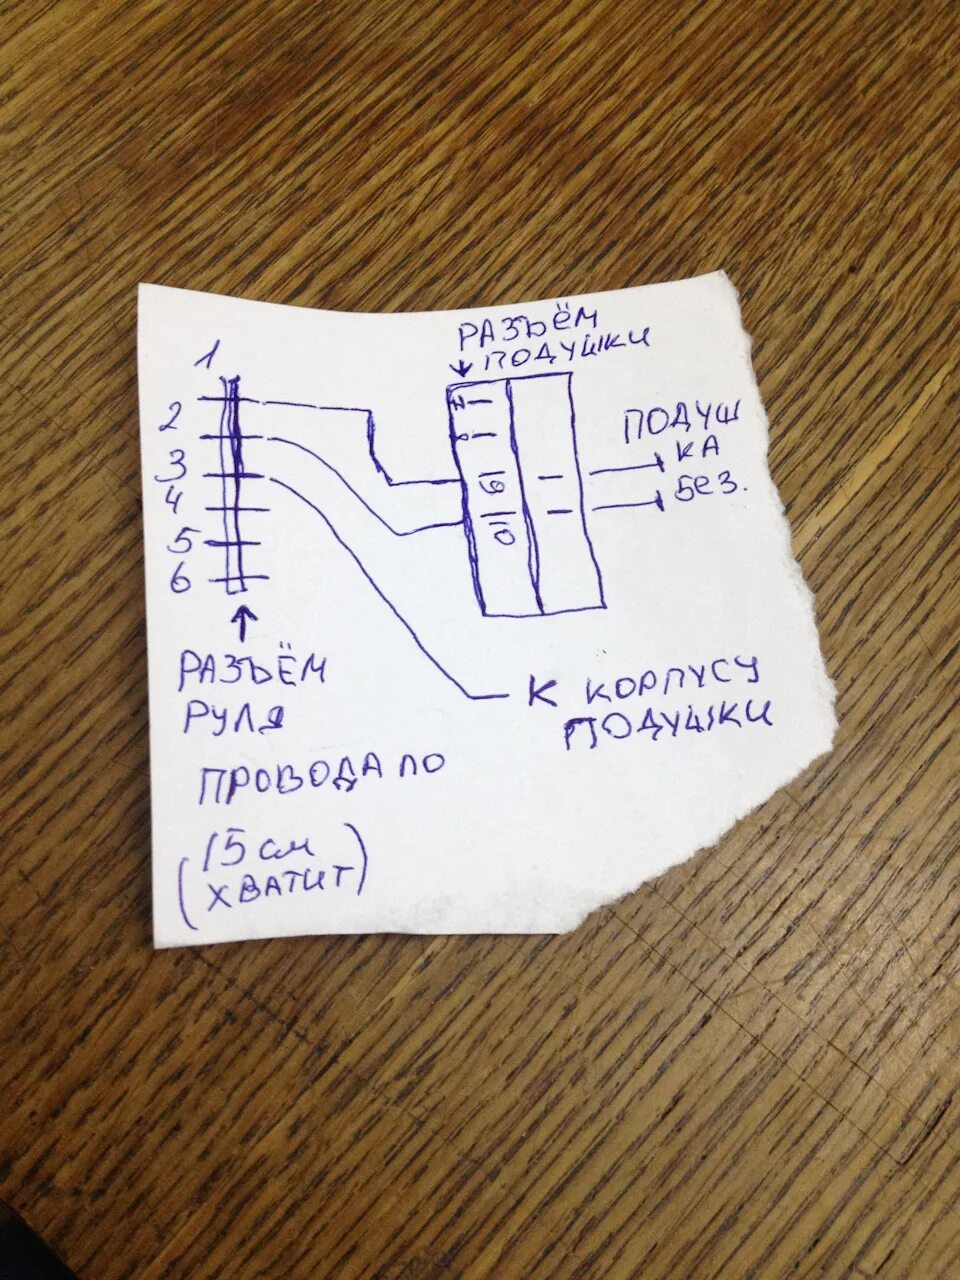 РАЗЪЁМ
ПОДУШКИ
1
2
3
4
5
6
ПОДУШ
КА
БЕЗ.
РАЗЪЁМ
РУЛЯ
К КОРПУСУ
ПОДУШКИ
ПРОВОДА ПО
(15 см
ХВАТИТ)